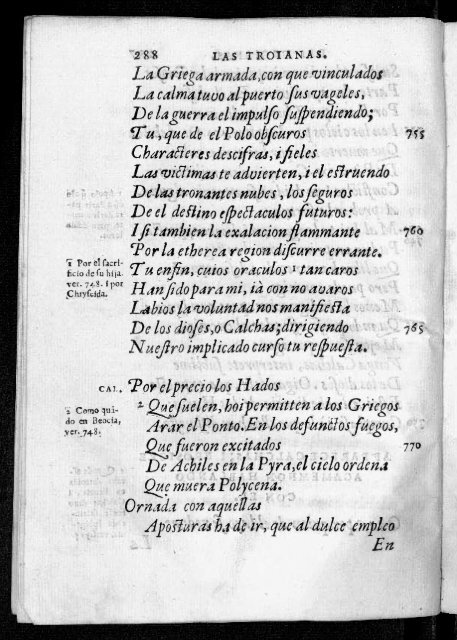 288 LAS TROIANAS.
La Griega armada, con que vinculados
La calma tuvo al puerto sus vageles,
De la guerra el impulso suspendiendo;
Tu, que de el Polo obscuros 755
Characteres descifras, i fieles
Las victimas te advierten, i el estruendo
De las tronantes nubes, los seguros
De el destino espectaculos futuros:
I si tambien la exalacion flammante 760
Por la etherea region discurre errante.
Tu enfin, cuios oraculos 1 tan caros
Han sido para mi, ià con no avaros
Labios la voluntad nos manifiesta
De los dioses, o Calchas; dirigiendo 765
Nuestro implicado curso tu respuesta.
1 Por el sacri-
ficio de su hija.
ver. 748. i por
Chryseida.
CAL. Por el precio los Hados
2 Que suelen, hoi permitten a los Griegos
Arar el Ponto. En los defunctos fuegos,
Que fueron excitados 770
De Achiles en la Pyra, el cielo ordena
Que muera Polycena.
Ornada con aquellas
Aposturas ha de ir, que al dulce empleo
En
2 Como qui-
do en Beocia,
ver. 748.